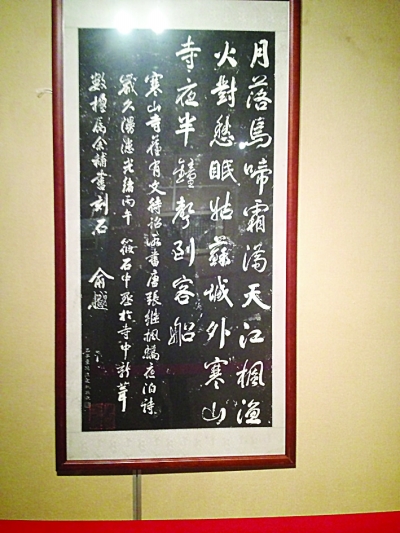 月落烏啼霜滿天江楓漁
火對愁眠姑蘇城外寒山
寺夜半鐘聲到客船
寒山寺舊有文待詔所書唐張繼楓橋夜泊詩
歲久漫漶光緒丙午筱石中丞於寺中新葺
數楹屬余補書刻石 俞樾